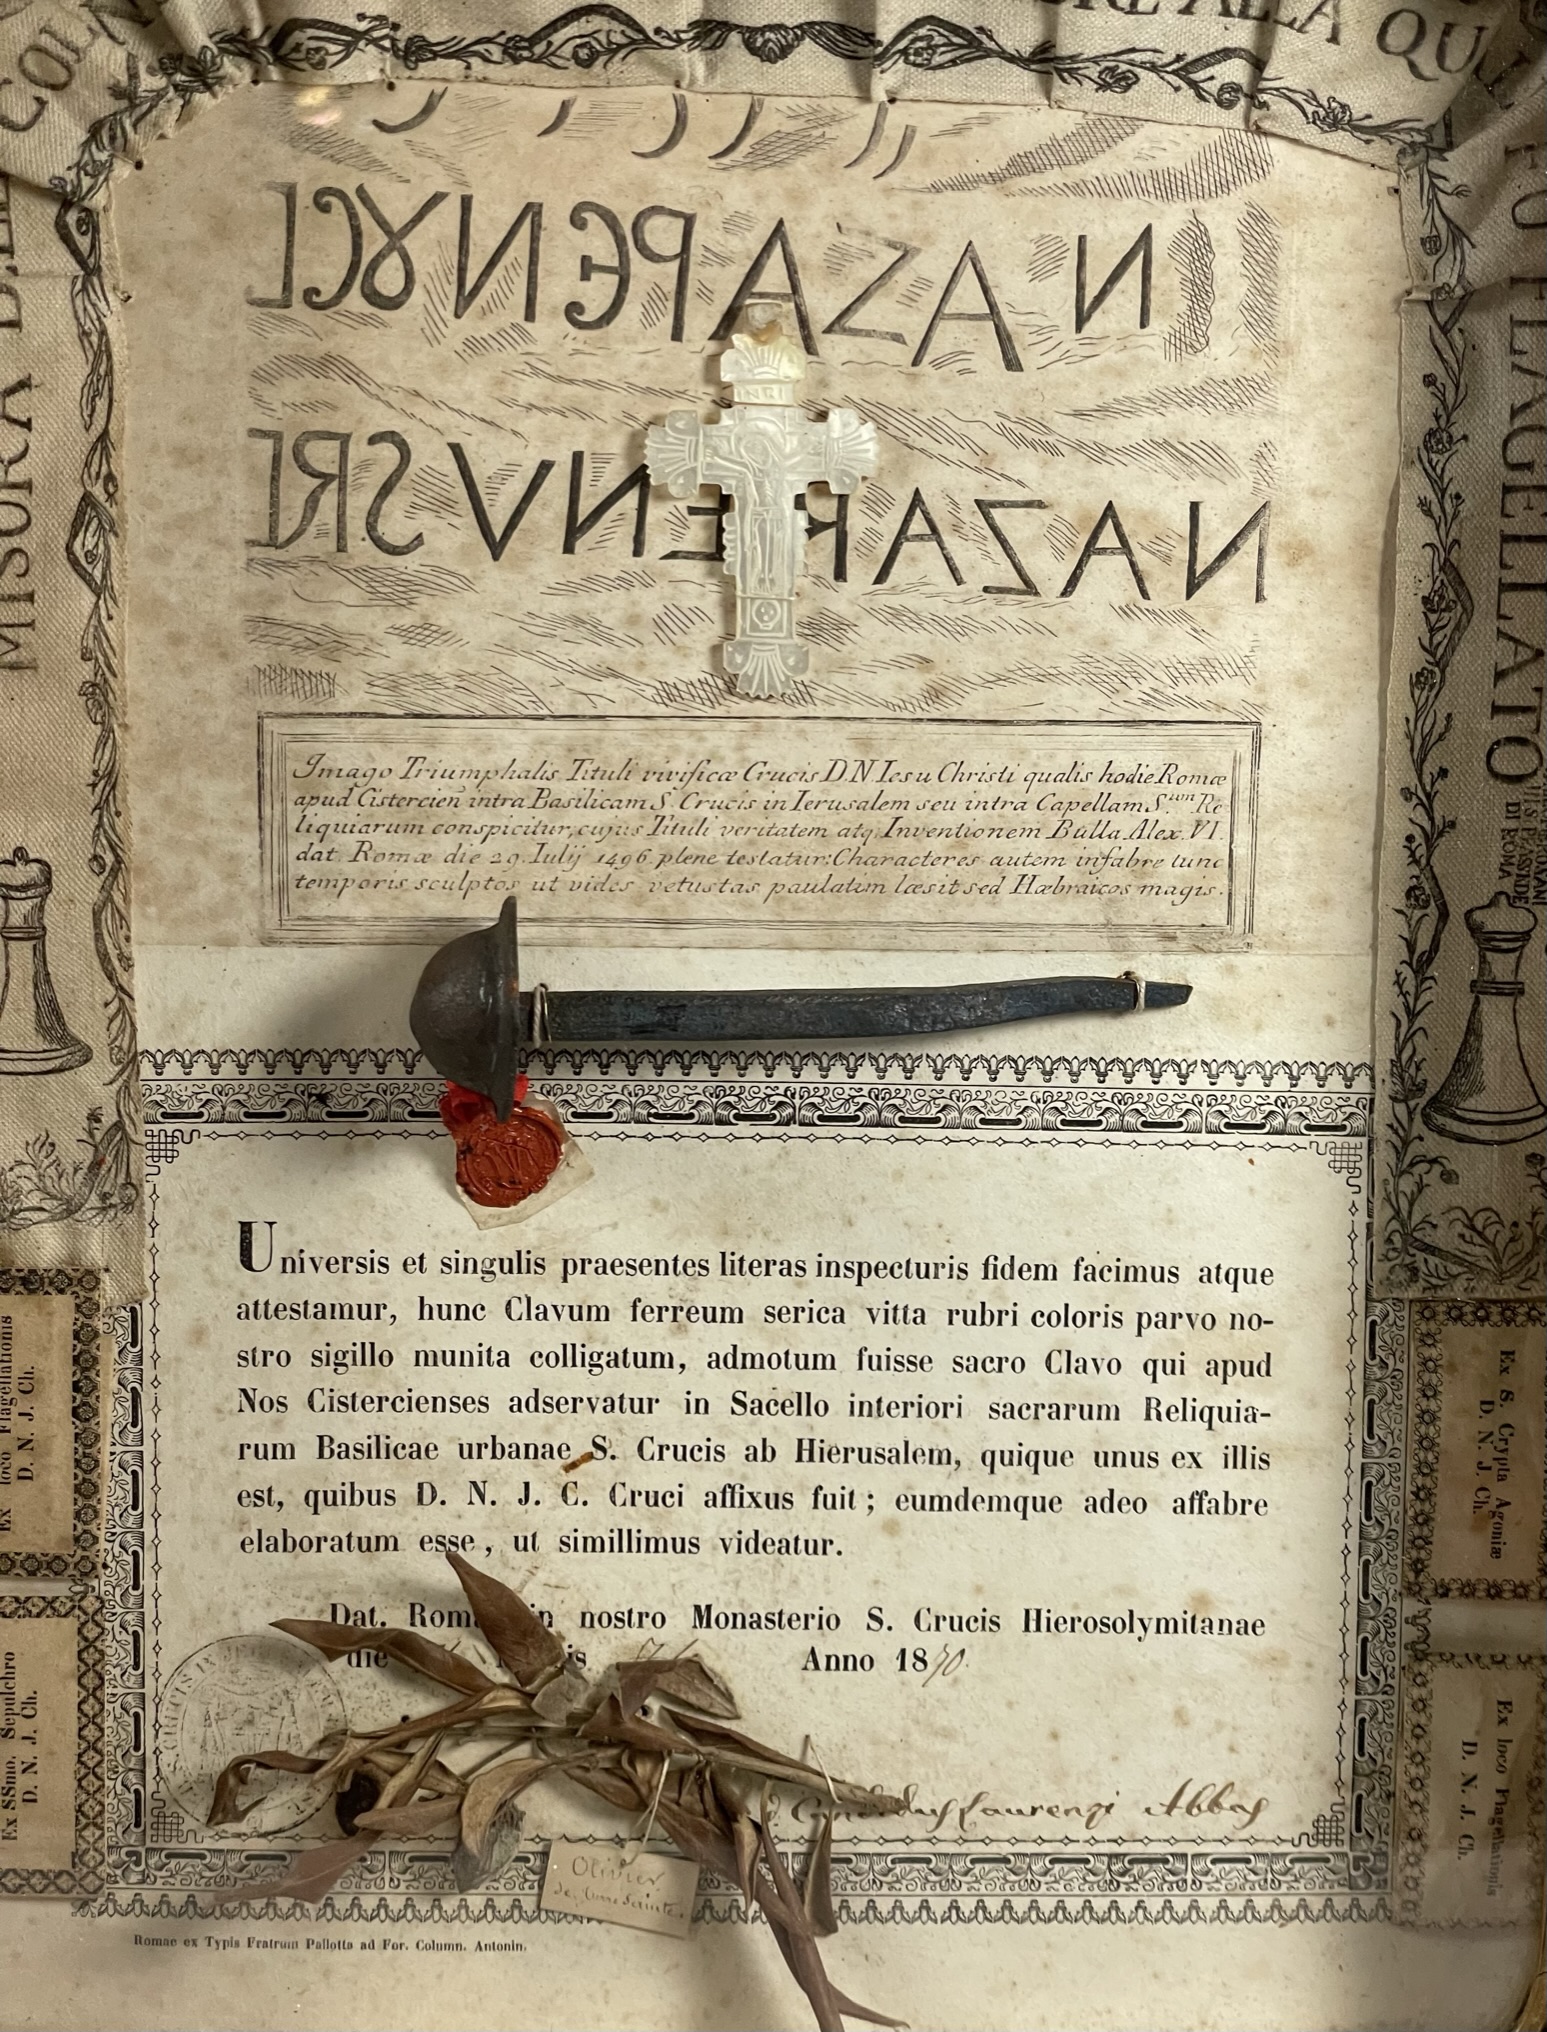 COL
RE ALLA QU
MISURA DELL
FU FLAGELLATO
DI ROMA
ΙϽȢИƎꟼAZAИ
INRI
IЯƧVИƎЯAZAИ
Imago Triumphalis Tituli vivificæ Crucis D.N. Iesu Christi qualis hodie Romæ
apud Cistercien̄ intra Basilicam S. Crucis in Ierusalem seu intra Capellam S.ᵘᵐ Re
liquiarum conspicitur, cujus Tituli veritatem atq. Inventionem Bulla Alex. VI.
dat. Romæ die 29. Iulij 1496 plene testatur: Characteres autem infabre tunc
temporis sculptos ut vides vetustas paulatim læsit sed Hæbraicos magis.
Universis et singulis praesentes literas inspecturis fidem facimus atque
attestamur, hunc Clavum ferreum serica vitta rubri coloris parvo no-
stro sigillo munita colligatum, admotum fuisse sacro Clavo qui apud
Nos Cistercienses adservatur in Sacello interiori sacrarum Reliquia-
rum Basilicae urbanae S. Crucis ab Hierusalem, quique unus ex illis
est, quibus D. N. J. C. Cruci affixus fuit ; eumdemque adeo affabre
elaboratum esse , ut simillimus videatur.
Dat. Rom in nostro Monasterio S. Crucis Hierosolymitanae
die is Anno 1870
Candidus Laurenzi Abbas
Olivier
de Terre Sainte.
Romae ex Typis Fratrum Pallotta ad For. Column. Antonin.
Ex loco Flagellationis
D. N. J. Ch.
Ex SSmo. Sepulchro
D. N. J. Ch.
Ex S. Crypta Agoniæ
D. N. J. Ch.
Ex loco Flagellationis
D. N. J. Ch.